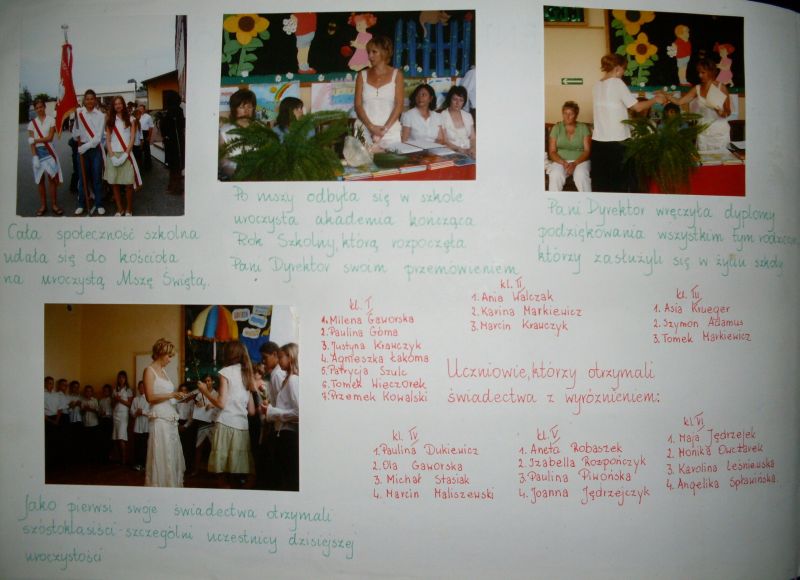 Cała społeczność szkolna
udała się do kościoła
na uroczystą Mszę Świętą.
Po mszy odbyła się w szkole
uroczysta akademia kończąca
Rok Szkolny, którą rozpoczęła
Pani Dyrektor swoim przemówieniem
Pani Dyrektor wręczyła dyplomy
podziękowania wszystkim tym rodzicom
którzy zasłużyli się w życiu szkoły
kl. I
1. Milena Gaworska
2. Paulina Góma
3. Justyna Krawczyk
4. Agnieszka Łakoma
5. Patrycja Szulc
6. Tomek Wieczorek
7. Przemek Kowalski
kl. II
1. Ania Walczak
2. Karina Markiewicz
3. Marcin Krawczyk
kl. III
1. Asia Krueger
2. Szymon Adamus
3. Tomek Markiewicz
Uczniowie, którzy otrzymali
świadectwa z wyróżnieniem:
kl. IV
1. Paulina Dukiewicz
2. Ola Gaworska
3. Michał Stasiak
4. Marcin Maliszewski
kl. V
1. Aneta Robaszek
2. Izabella Rozpończyk
3. Paulina Piwońska
4. Joanna Jędrzejczyk
kl. VI
1. Maja Jędrzejek
2. Monika Owczarek
3. Karolina Leśniewska
4. Angelika Spławińska.
Jako pierwsi swoje świadectwa otrzymali
szóstoklasiści - szczególni uczestnicy dzisiejszej
uroczystości